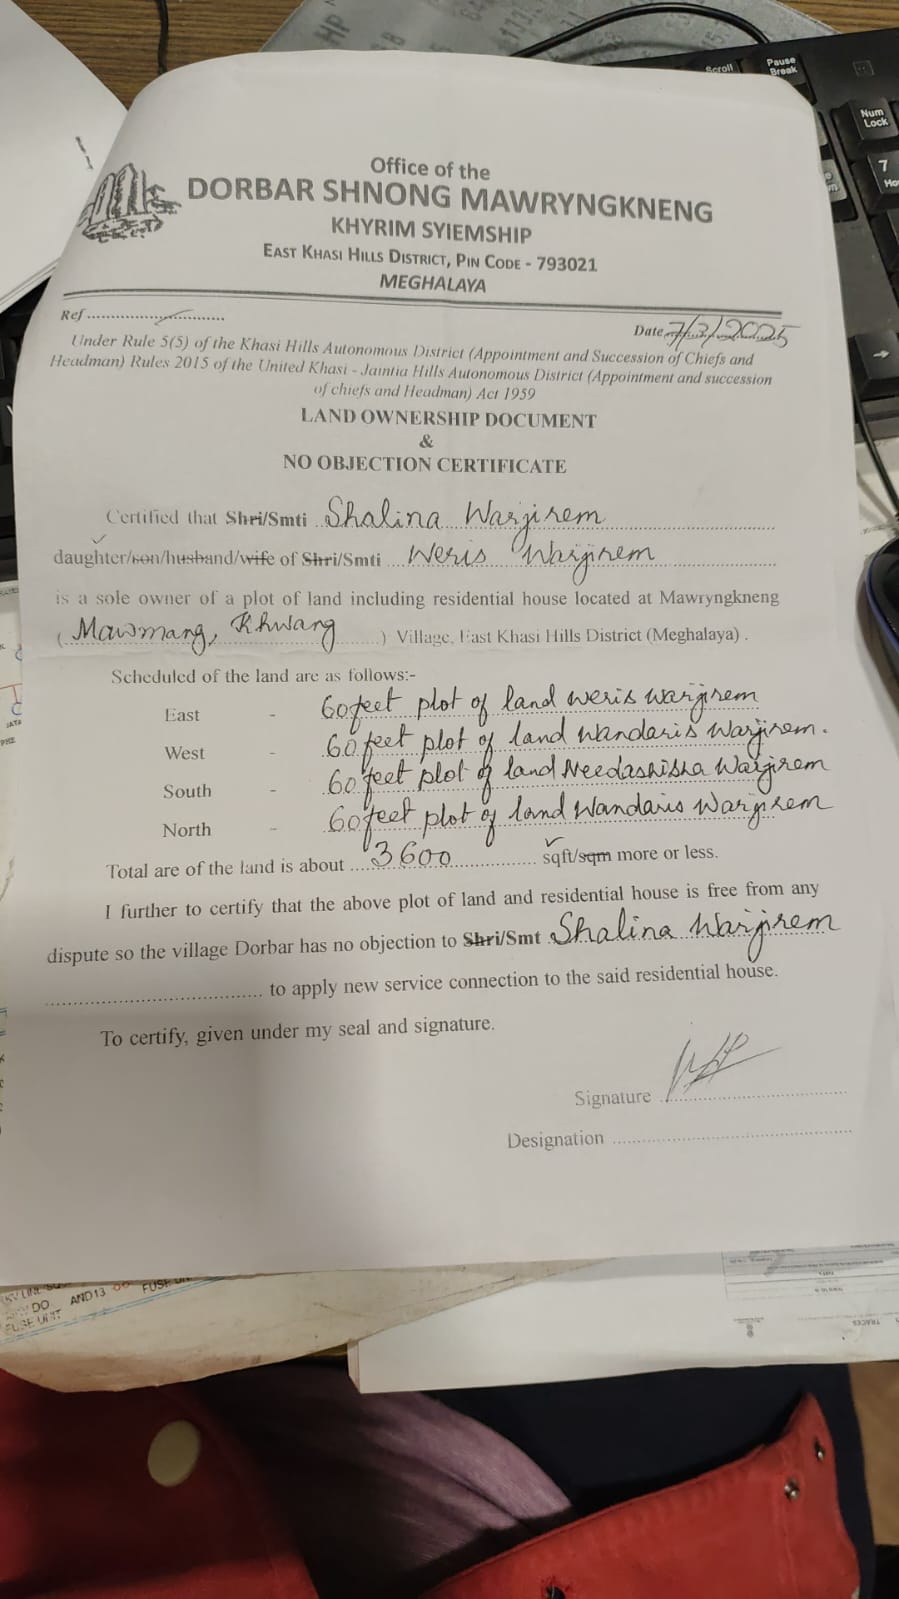 Office of the
DORBAR SHNONG MAWRYNGKNENG
KHYRIM SYIEMSHIP
EAST KHASI HILLS DISTRICT, PIN CODE - 793021
MEGHALAYA
Ref....................... Date 7/3/2025
Under Rule 5(5) of the Khasi Hills Autonomous District (Appointment and Succession of Chiefs and
Headman) Rules 2015 of the United Khasi - Jaintia Hills Autonomous District (Appointment and succession
of chiefs and Headman) Act 1959
LAND OWNERSHIP DOCUMENT
&
NO OBJECTION CERTIFICATE
Certified that Shri/Smti Shalina Warjirem
daughter/son/husband/wife of Shri/Smti Weris Warjirem
is a sole owner of a plot of land including residential house located at Mawryngkneng
(Mawmang, Khwang) Village, East Khasi Hills District (Meghalaya) .
Scheduled of the land are as follows:-
East - 60 feet plot of land weris warjirem
West - 60 feet plot of land Wandaris Warjirem.
South - 60 feet plot of land Needashisha Warjirem
North - 60 feet plot of land Wandaris Warjirem
Total are of the land is about 3600 sqft/sqm more or less.
I further to certify that the above plot of land and residential house is free from any
dispute so the village Dorbar has no objection to Shri/Smt Shalina Warjirem
.................................... to apply new service connection to the said residential house.
To certify, given under my seal and signature.
Signature ....................................
Designation ....................................
Scroll
Pause
Break
Num
Lock
7
HP
DO
AND13
FUSE
FUSE UNIT
TRACES